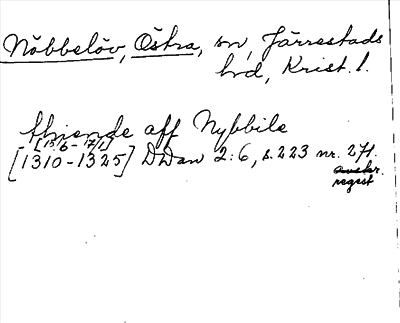 Nöbbelöv, Östra, sn, Järrestads
hd, Krist. l.
thiende aff Nybbile
[15/6 - 17/1]
[1310-1325] DDan 2:6, s. 223 nr. 271.
avskr.
regist